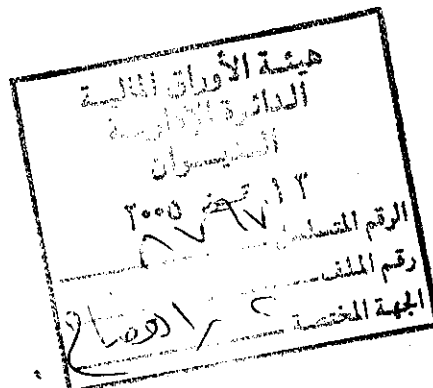 هيئة الأوراق المالية
الدائرة الإدارية
الديوان
١٣ تموز ٢٠٠٥
الرقم المتسلسل
رقم الملف
الجهة المختصة الافصاح